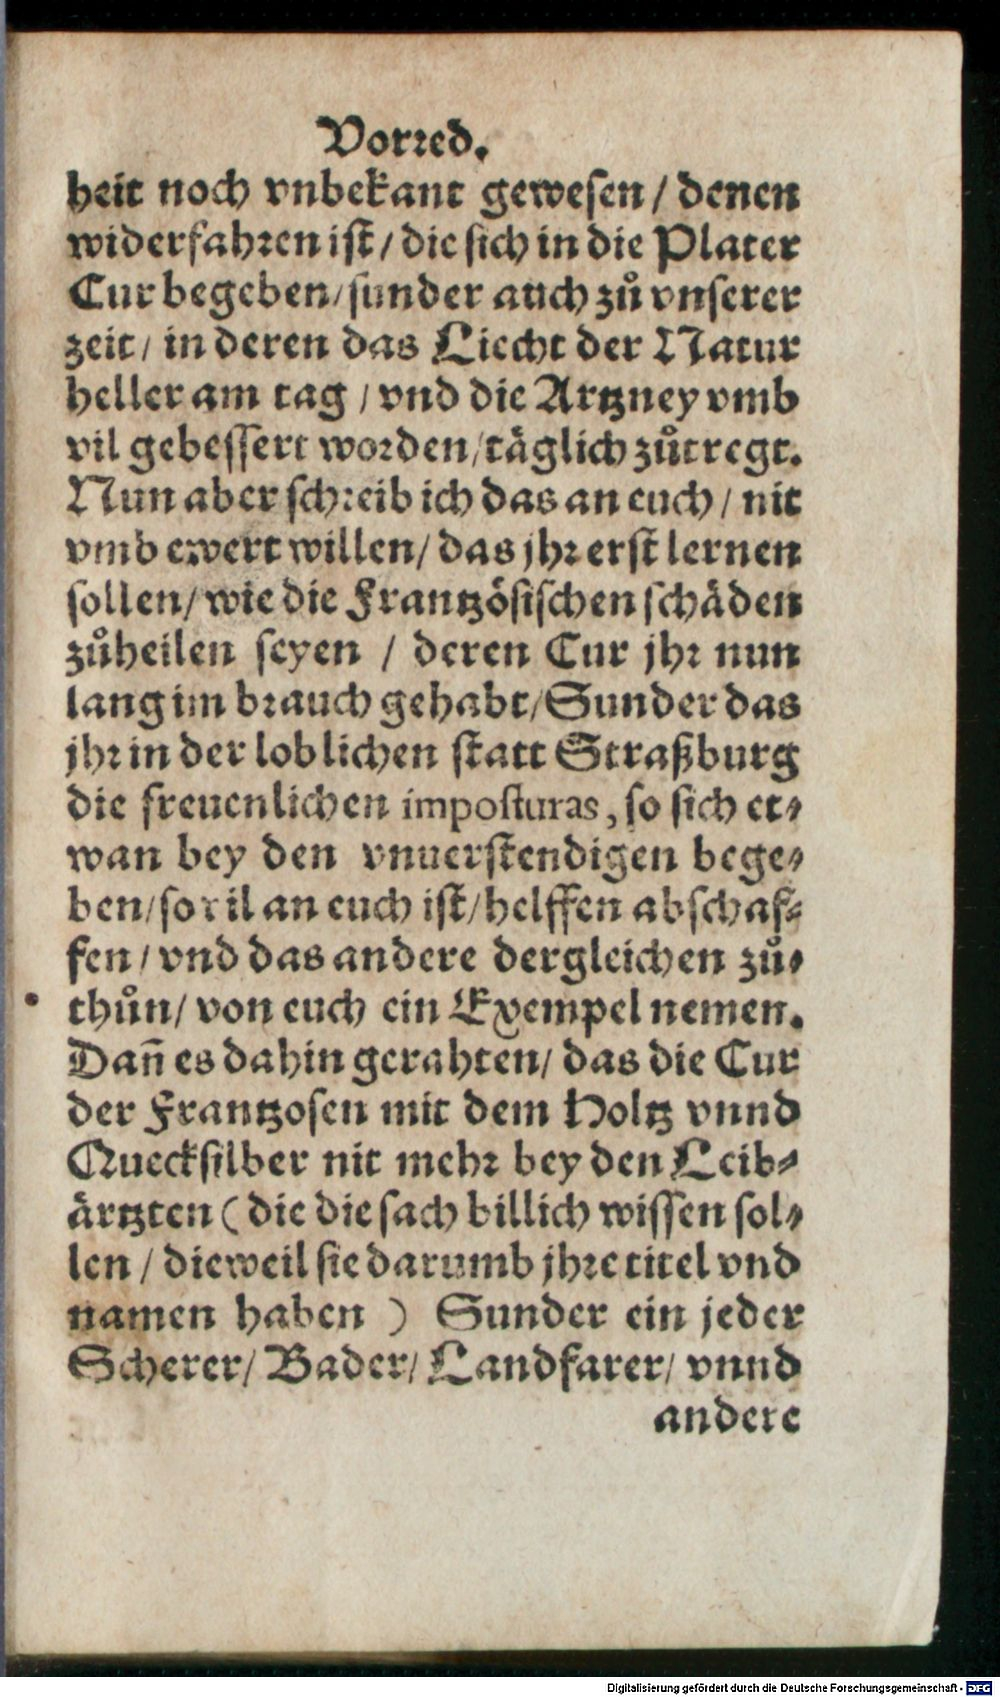 Vorred.
heit noch vnbekant gewesen / denen
widerfahren ist / die sich in die Plater
Cur begeben / sunder auch zů vnserer
zeit / in deren das Liecht der Natur
heller am tag / vnd die Artzney vmb
vil gebessert worden / täglich zůtregt.
Nun aber schreib ich das an euch / nit
vmb ewert willen / das jhr erst lernen
sollen / wie die Frantzösischen schäden
zůheilen seyen / deren Cur jhr nun
lang im brauch gehabt / Sunder das
jhr in der loblichen statt Straßburg
die freuenlichen imposturas, so sich et⸗
wan bey den vnuerstendigen bege⸗
ben / so vil an euch ist / helffen abschaf⸗
fen / vnd das andere dergleichen zů⸗
thůn / von euch ein Exempel nemen.
Dañ es dahin gerahten / das die Cur
der Frantzosen mit dem Holtz vnnd
Quecksilber nit mehr bey den Leib⸗
ärtzten ( die die sach billich wissen sol⸗
len / dieweil sie darumb jhre titel vnd
namen haben ) Sunder ein jeder
Scherer / Bader / Landfarer / vnnd
andere
Digitalisierung gefördert durch die Deutsche Forschungsgemeinschaft - DFG